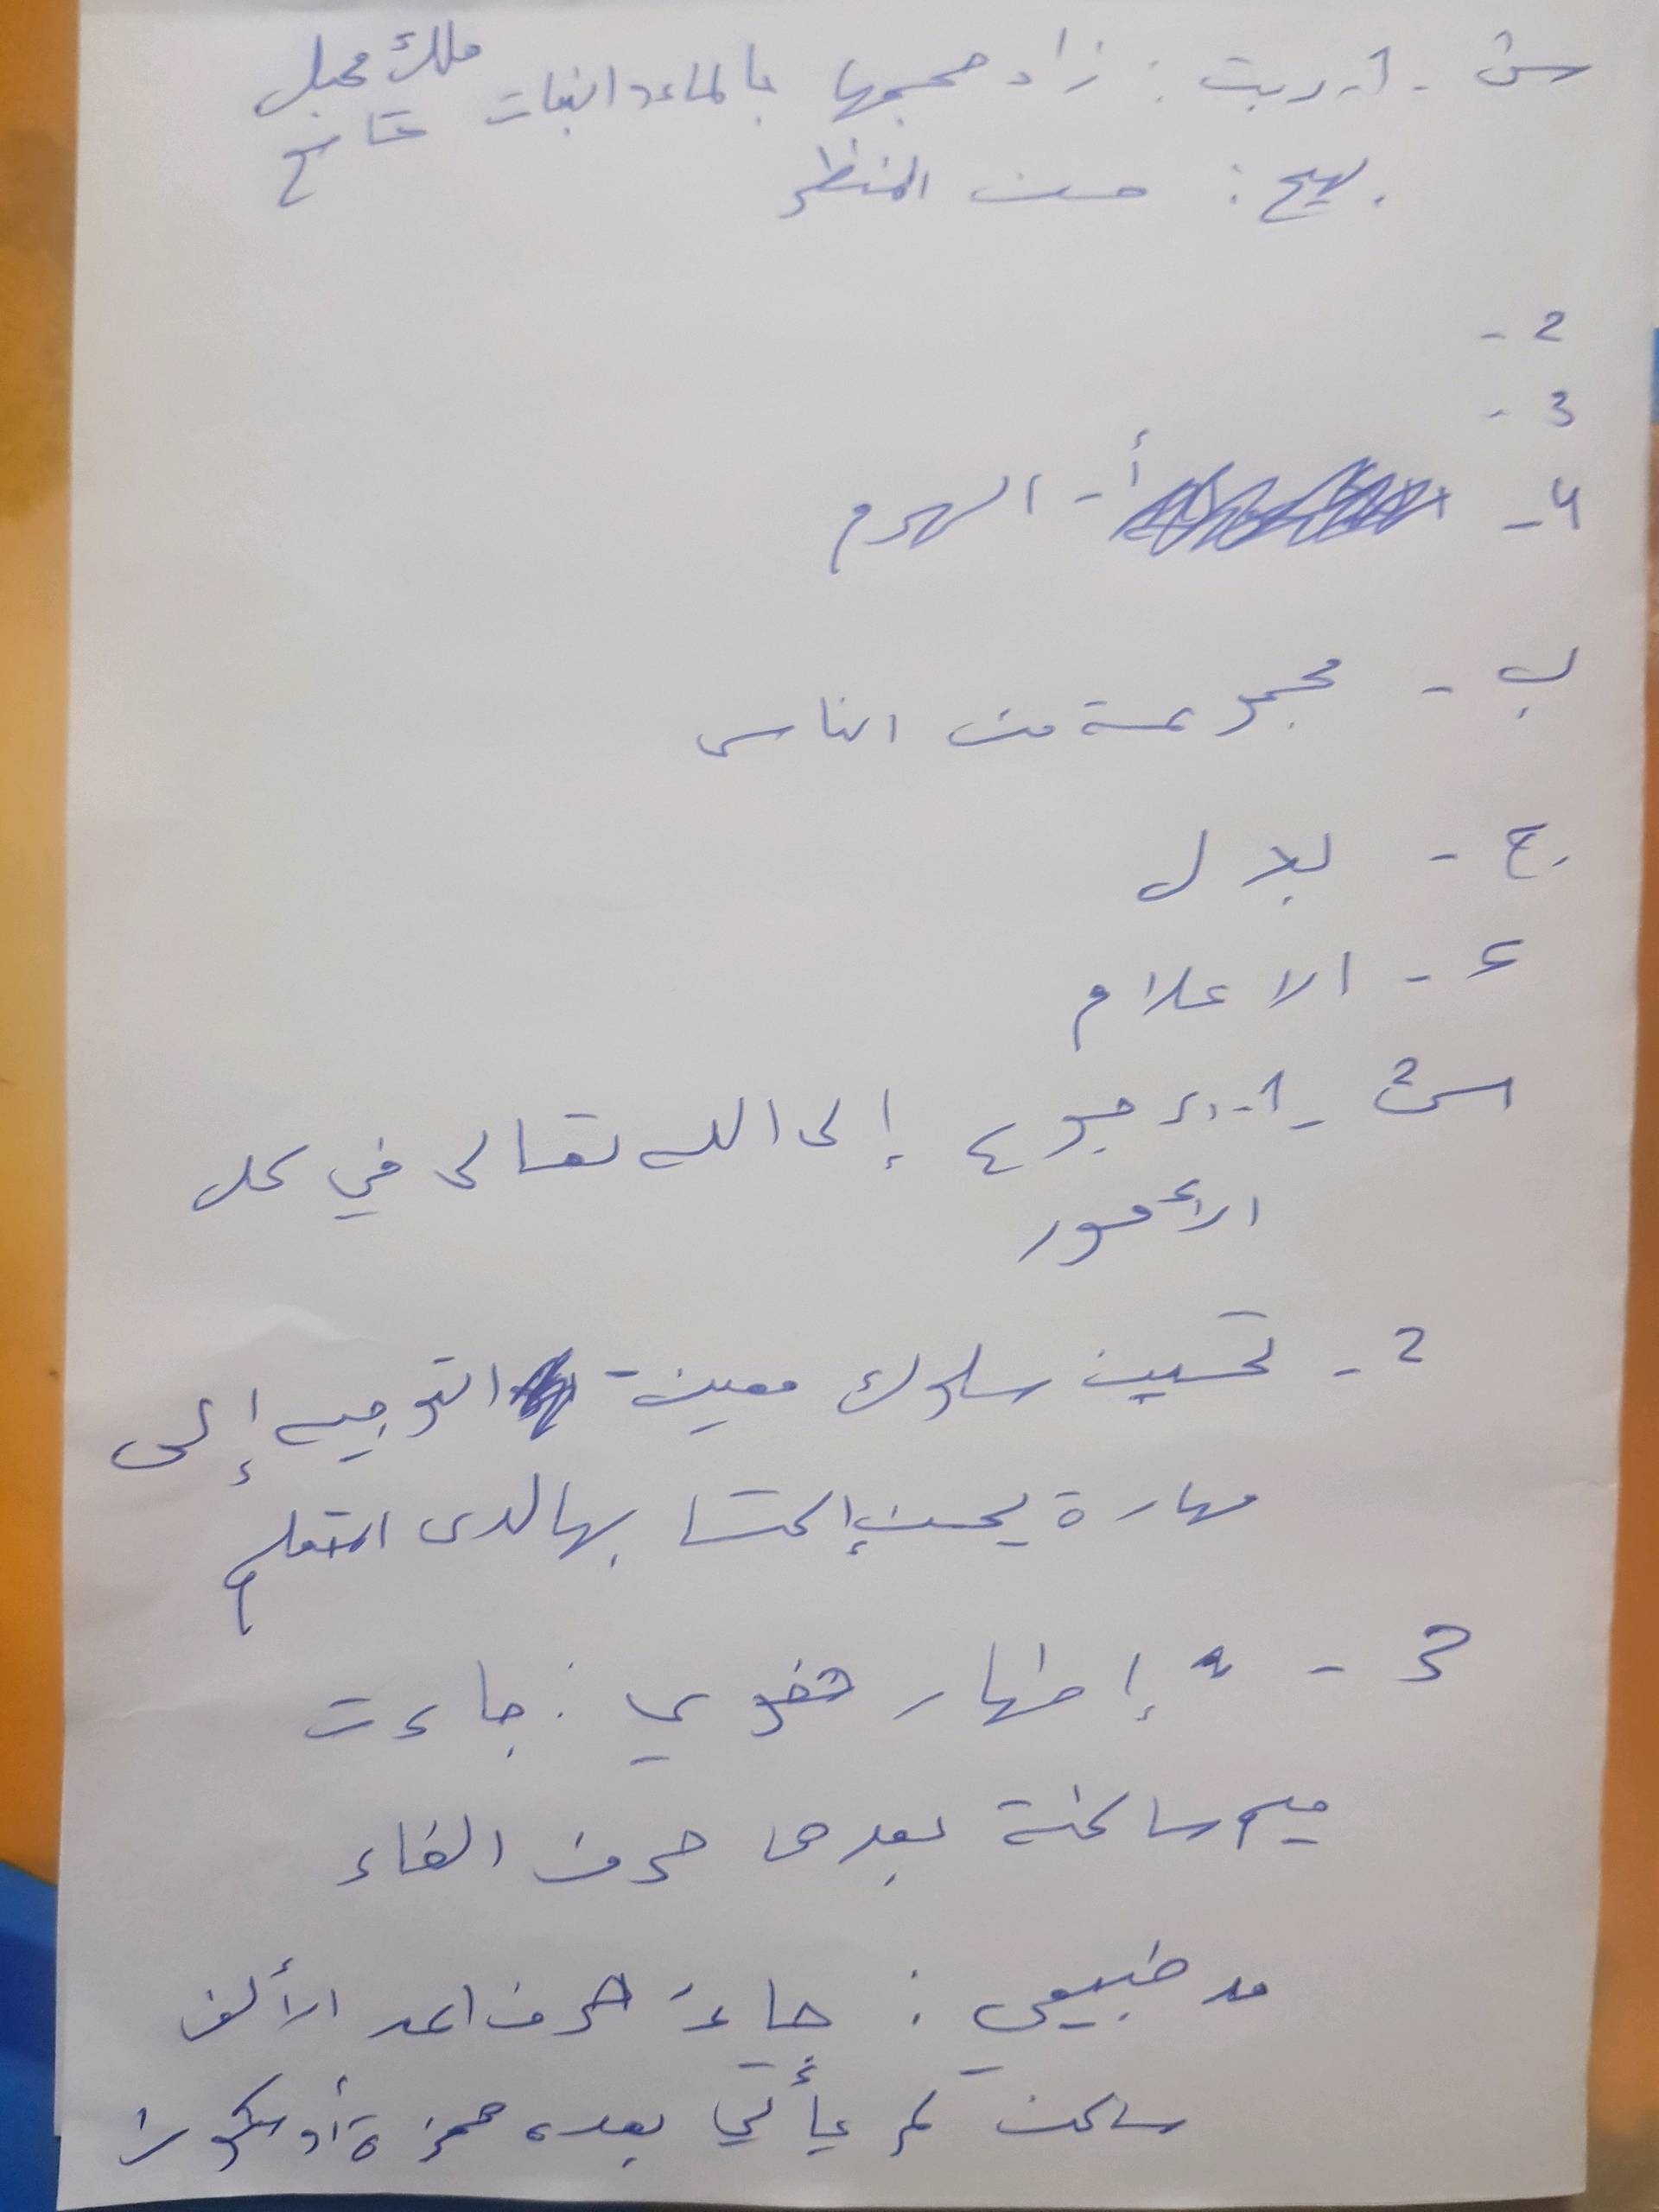 س1 - 1- ربت : زاد حجمها بالماء والنبات ملك مقبل
بهيج : حسن المنظر
2 -
3 -
4 - أ - الهرم
ب - مجموعة من الناس
ج - بلال
د - الاعلام
س2 - 1- الرجوع إلى الله تعالى في كل
الأمور
2 - تحسين سلوك معين - التوجيه إلى
مهارة يحسن إكتسابها لدى المتعلم
3 - إظهار شفوي : جاءت
ميم ساكنة بعدها حرف الفاء
مد طبيعي : جاء حرف المد الألف
ساكن لم يأتي بعده همزة أو سكون